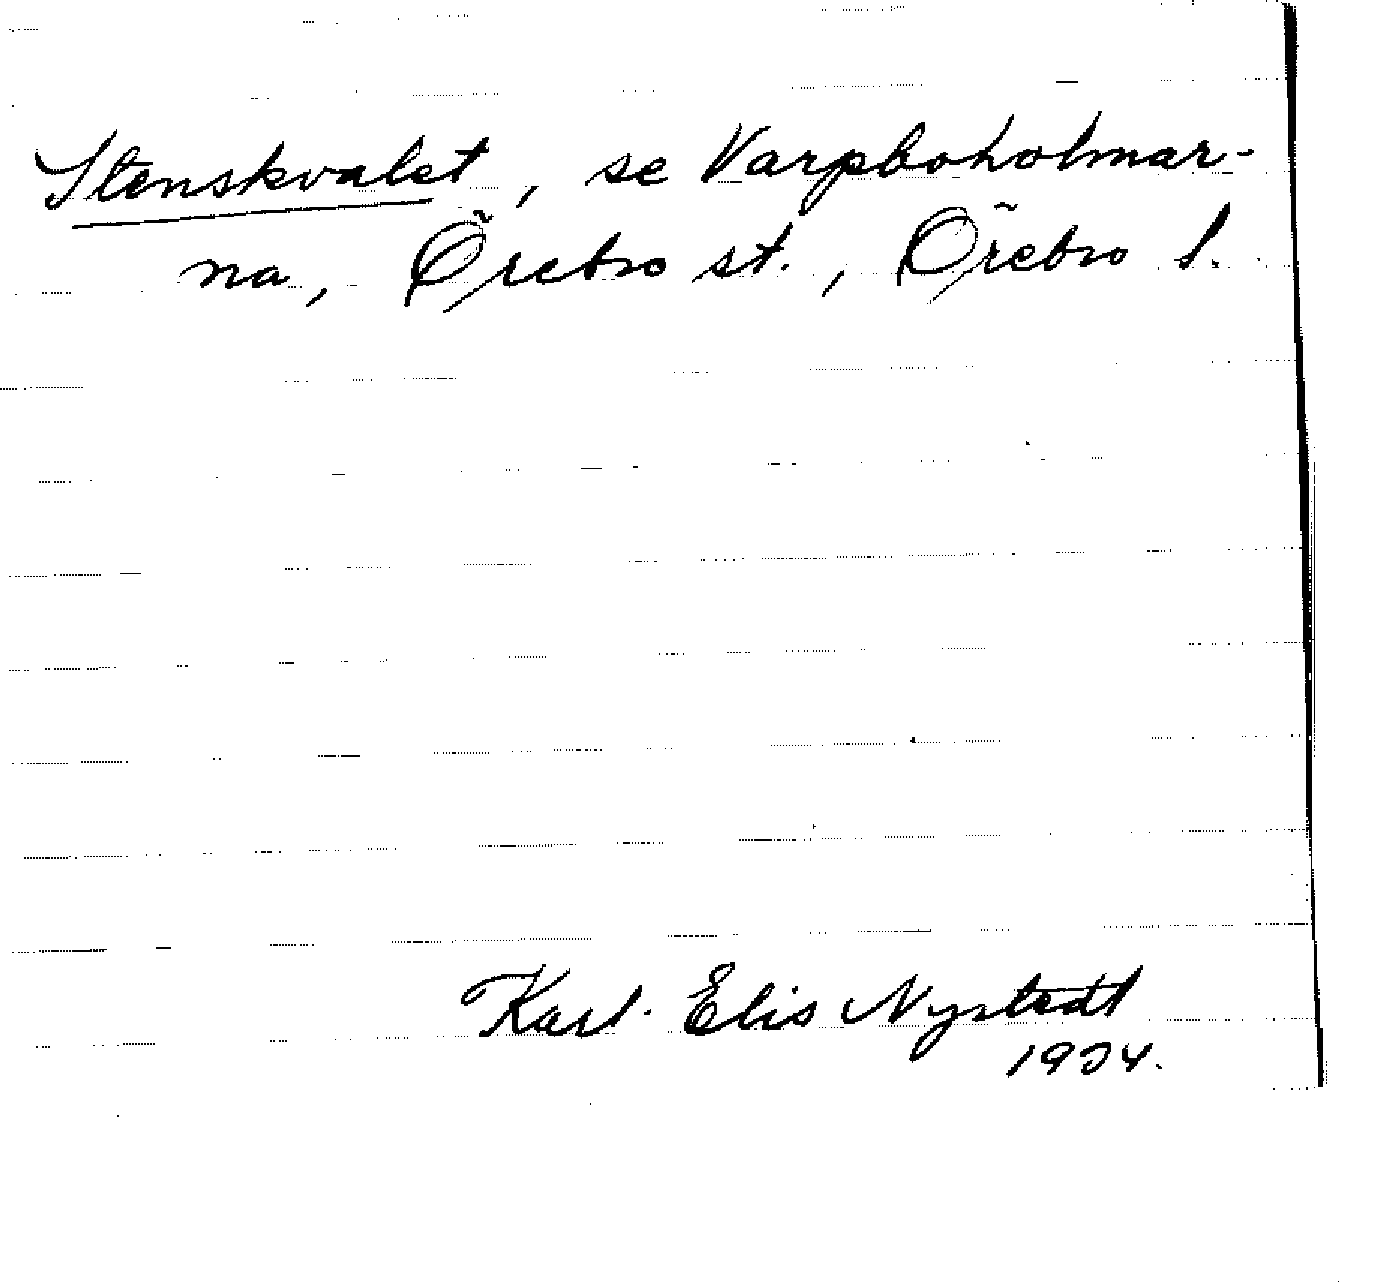 Stenskvalet, se Varpboholmar-
na, Örebro st., Örebro l.
Karl-Elis Nystedt
1934.